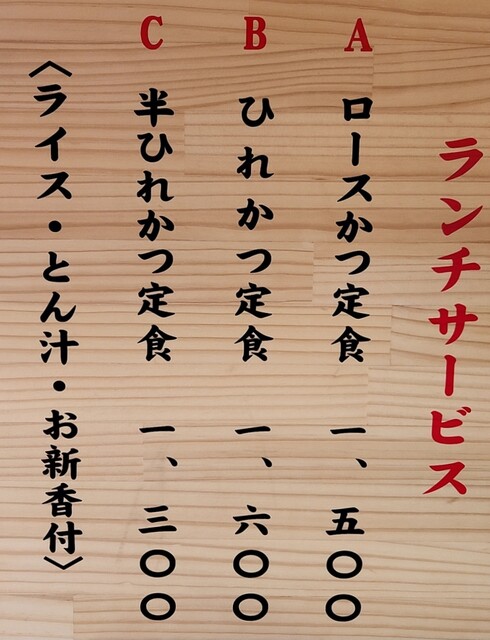 ランチサービス
A ロースかつ定食 一、五〇〇
B ひれかつ定食 一、六〇〇
C 半ひれかつ定食 一、三〇〇
〈ライス・とん汁・お新香付〉